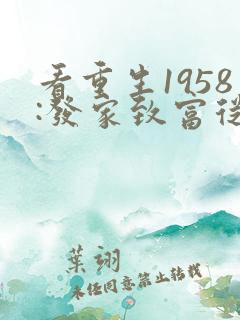 看重生1958
:發家致富從
葉翊
未經同意禁止轉載